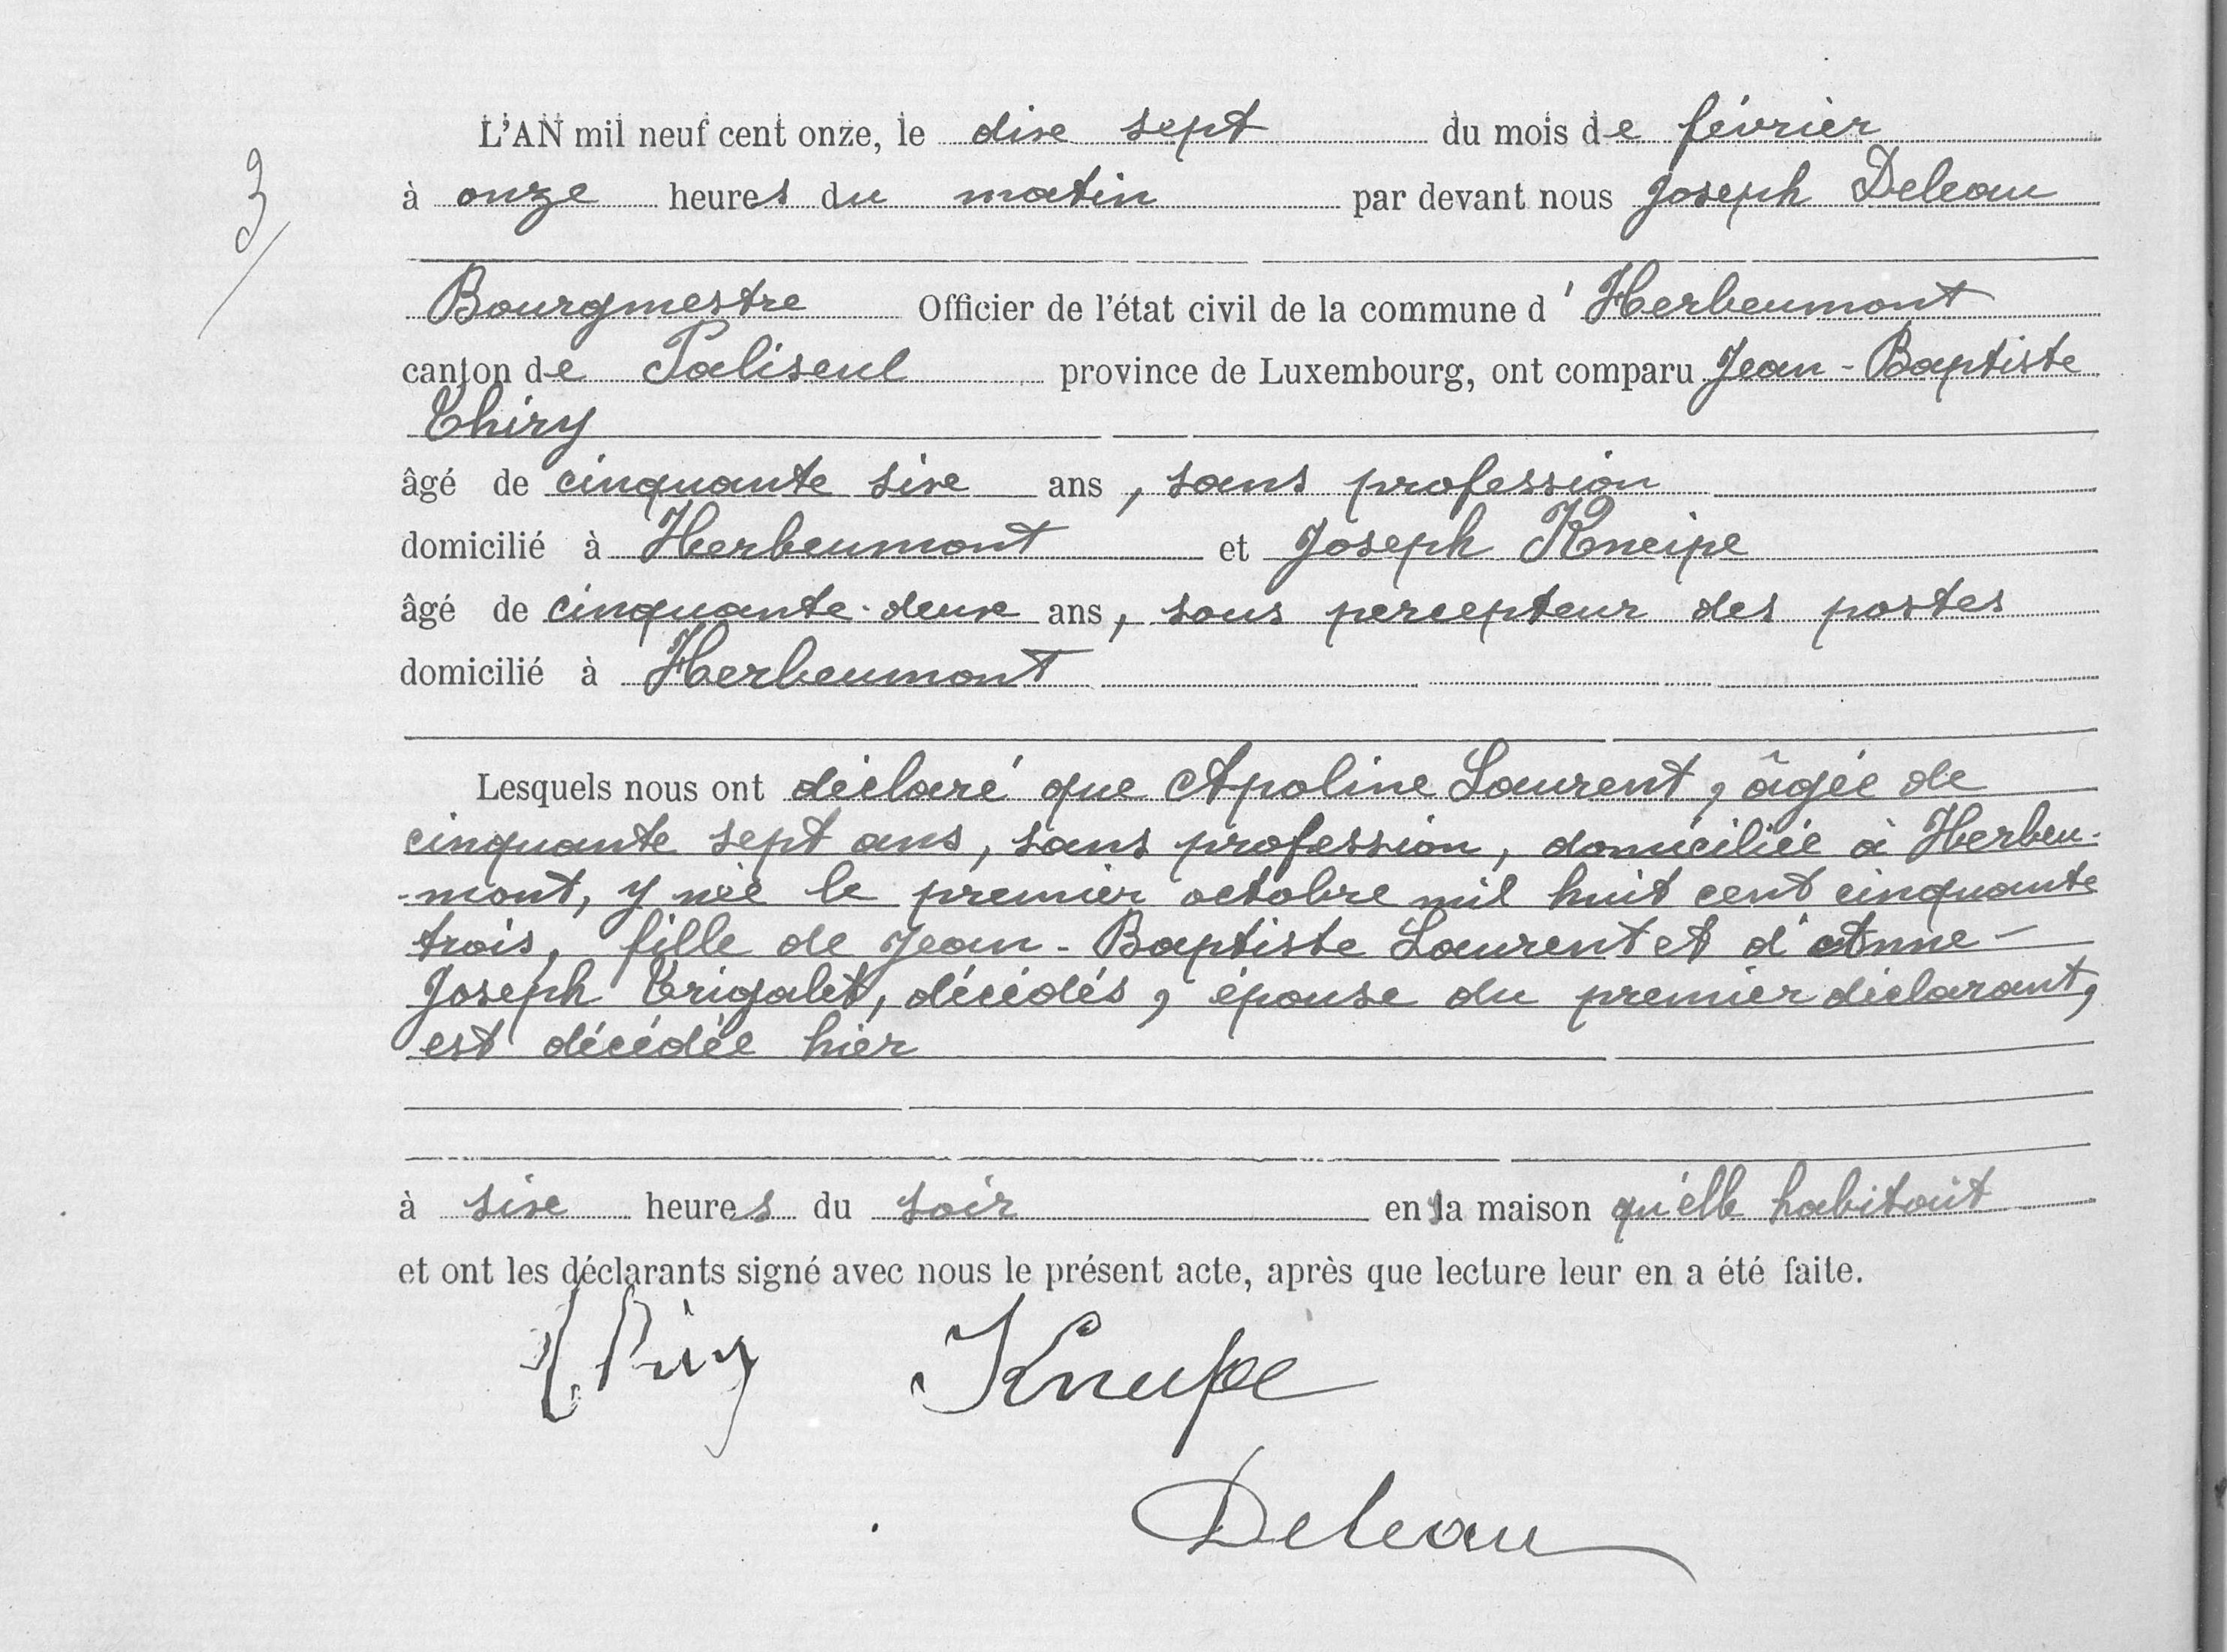 3
L'AN mil neuf cent onze, le dix sept du mois de février
à onze heures du matin par devant nous Joseph Deleau
Bourgmestre Officier de l'état civil de la commune d'Herbeumont
canton de Paliseul province de Luxembourg, ont comparu Jean-Baptiste
Thiry
âgé de cinquante six ans, sans profession
domicilié à Herbeumont et Joseph Kneipe
âgé de cinquante-deux ans, sous percepteur des postes
domicilié à Herbeumont
Lesquels nous ont déclaré que Apoline Laurent, âgée de
cinquante sept ans, sans profession, domiciliée à Herbeu-
-mont, y née le premier octobre mil huit cent cinquante
trois, fille de Jean-Baptiste Laurent et d'Anne-
Joseph Trigalet, décédés, épouse du premier déclarant,
est décédée hier
à six heures du soir en sa maison qu'elle habitait
et ont les déclarants signé avec nous le présent acte, après que lecture leur en a été faite.
Thiry Kneipe
Deleau